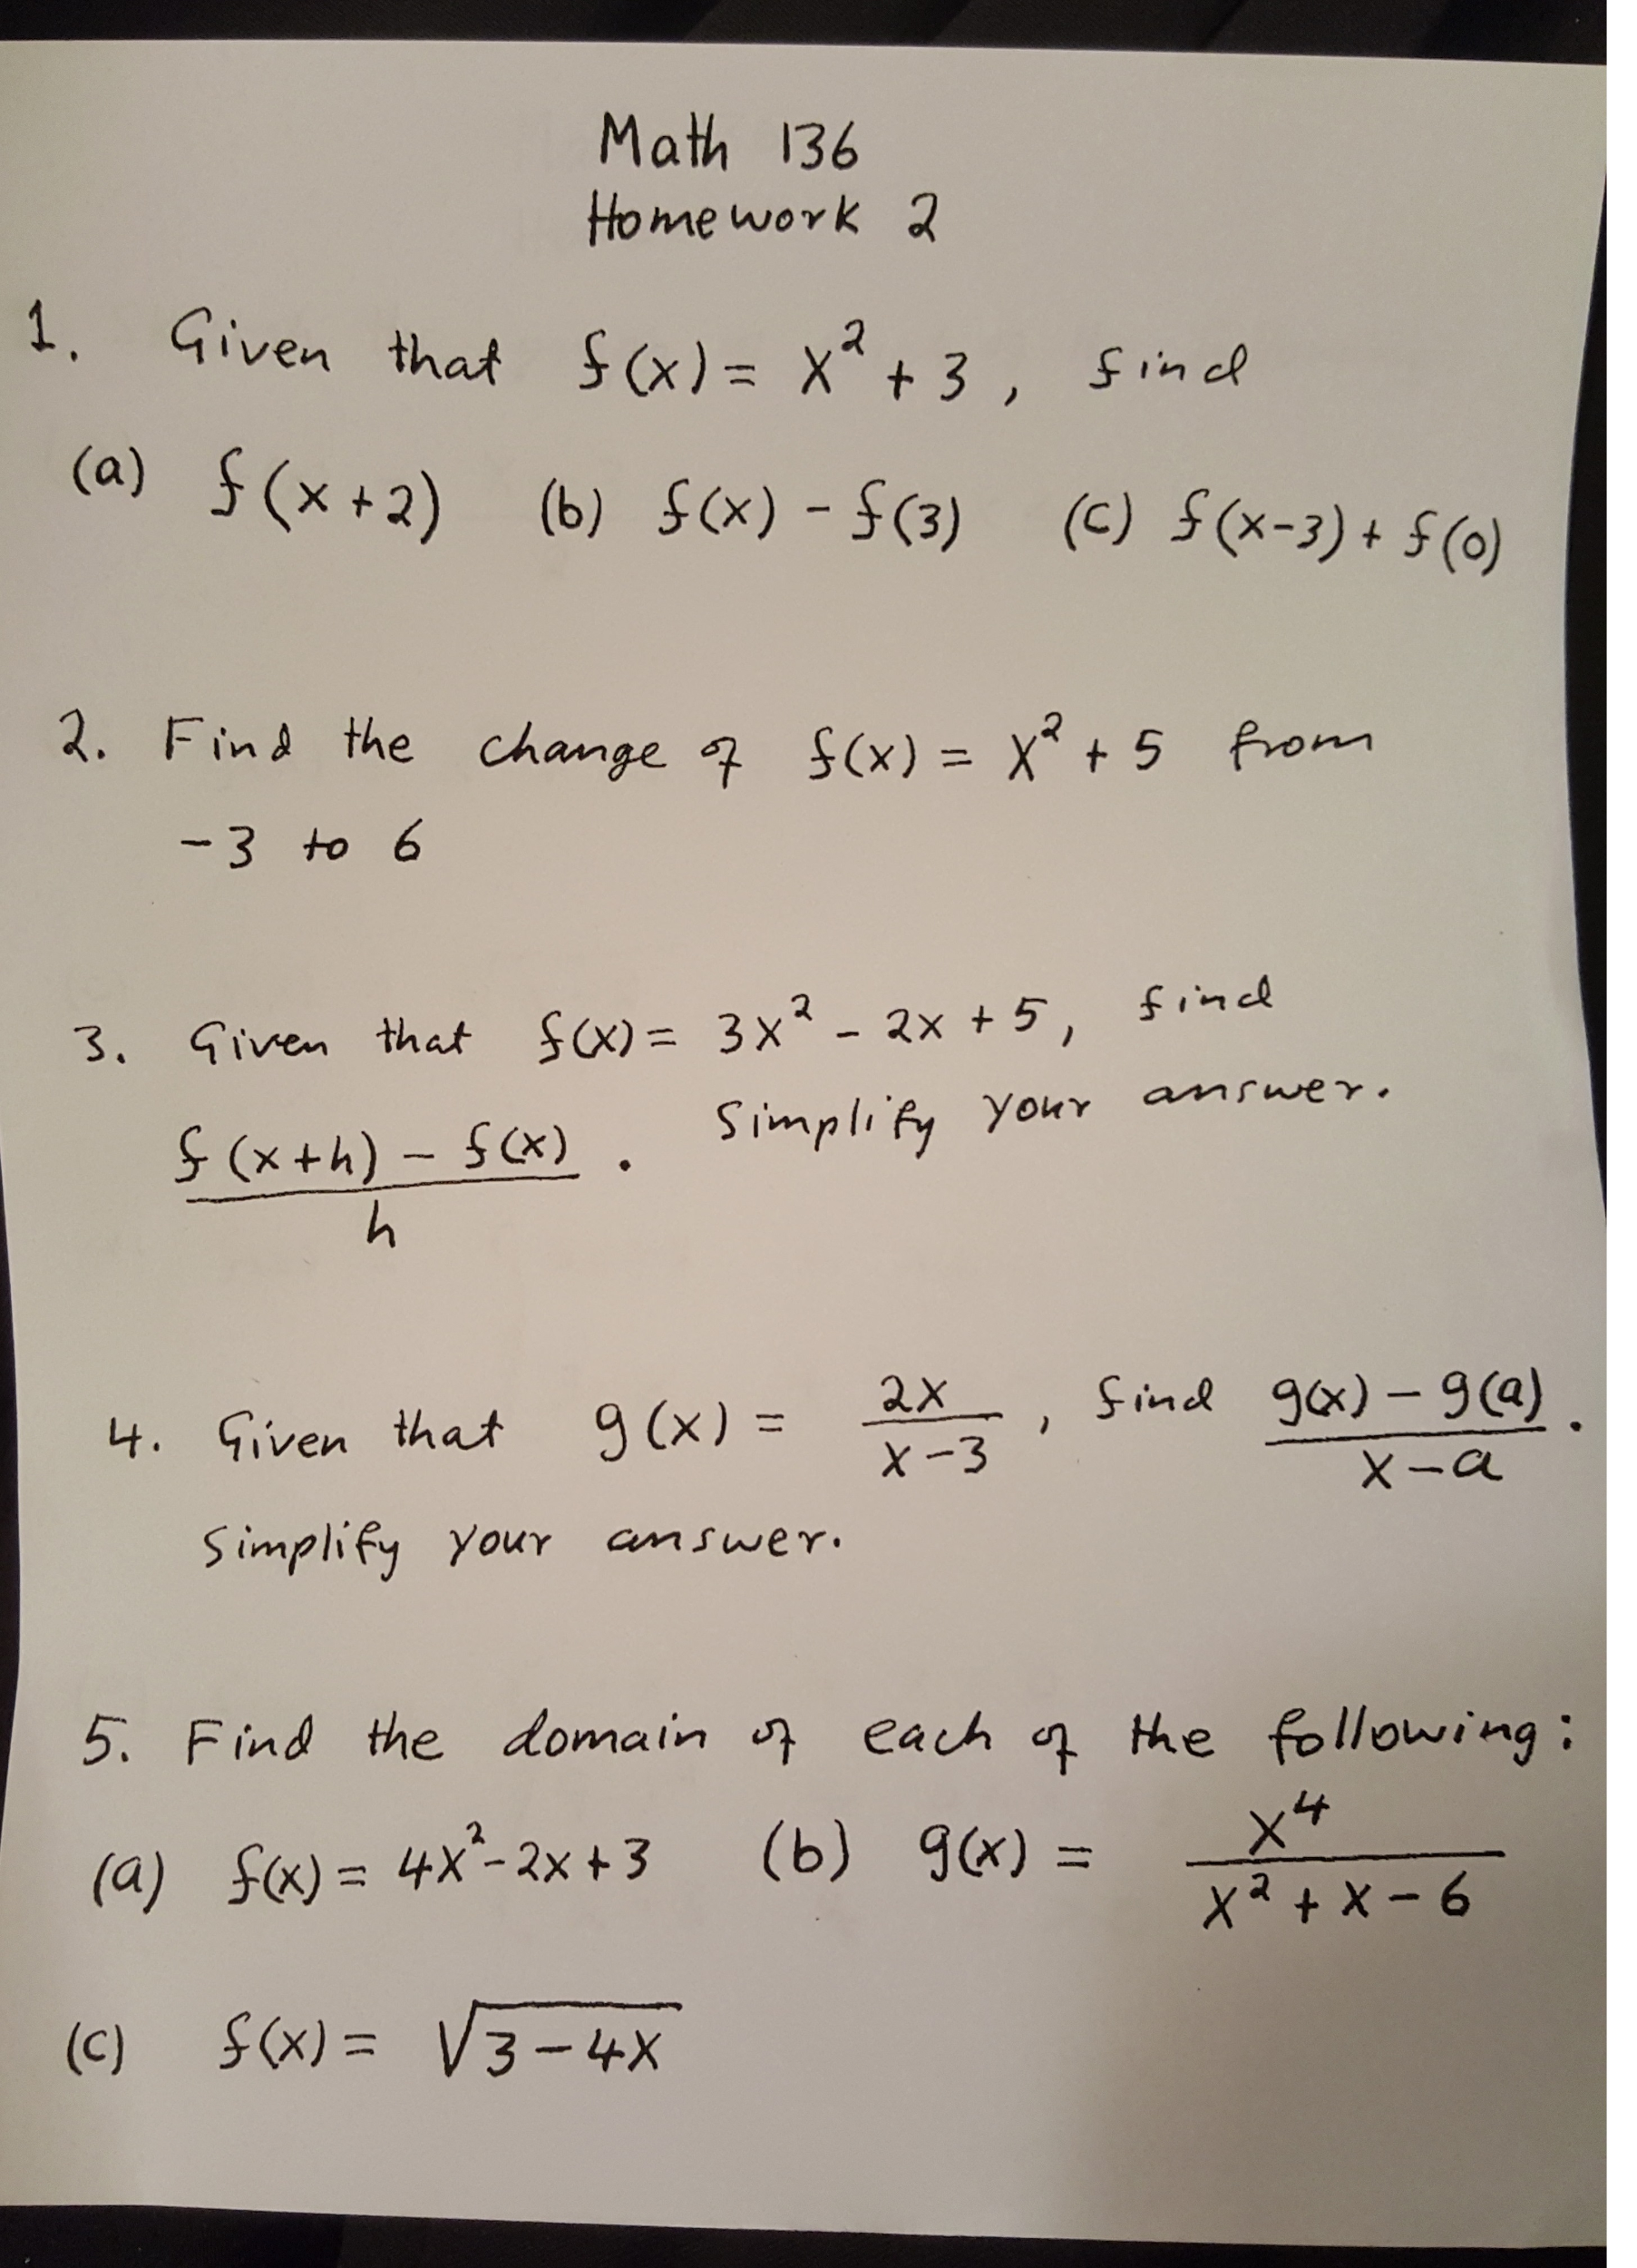 Math 136
Homework 2
1. Given that f(x) = x² + 3, find
(a) f(x+2) (b) f(x) - f(3) (c) f(x-3) + f(0)
2. Find the change of f(x) = x² + 5 from
-3 to 6
3. Given that f(x) = 3x² - 2x + 5, find
(f(x+h) - f(x))/h. Simplify your answer.
4. Given that g(x) = 2x/(x-3), find (g(x) - g(a))/(x-a).
Simplify your answer.
5. Find the domain of each of the following:
(a) f(x) = 4x² - 2x + 3 (b) g(x) = x⁴/(x² + x - 6)
(c) f(x) = √(3-4x)